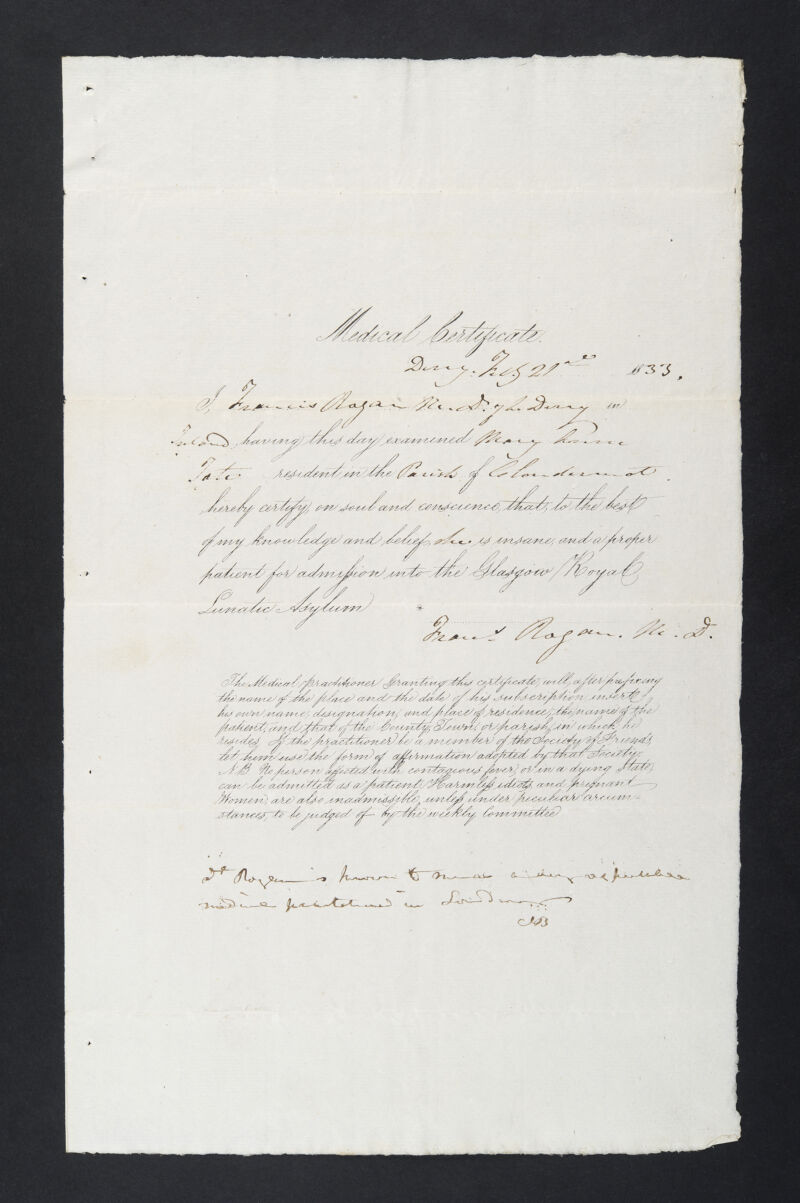 Medical Certificate.
Derry. Feby 21st 1833.
I, Francis Rogan M. Dr. of L. Derry in
Ireland, having this day examined Mary Anne
Tate resident in the Parish of Clondermot
hereby certify, on soul and conscience, that, to the best
of my knowledge and belief, she is insane, and a proper
patient for admission into the Glasgow Royal
Lunatic Asylum
Frans. Rogan. M. D.
The Medical practitioner Granting this certificate, will, after prefixing
the name of the place and the date of his subscription insert
his own name, designation, and place of residence, the name of the
patient, and that of the County, Town, or parish, in which he
resides. If the practitioner be a member of the Society of Friends,
let him use the form of affirmation adopted by that Society.
N.B. No person affected with contagious fever, or in a dying State,
can be admitted as a patient. Harmless idiots, and pregnant
Women, are also inadmissible, unless under peculiar circum-
stances, to be judged of by the weekly Committee
Dr. Rogan is known to me as a very respectable
medical practitioner in Londonderry